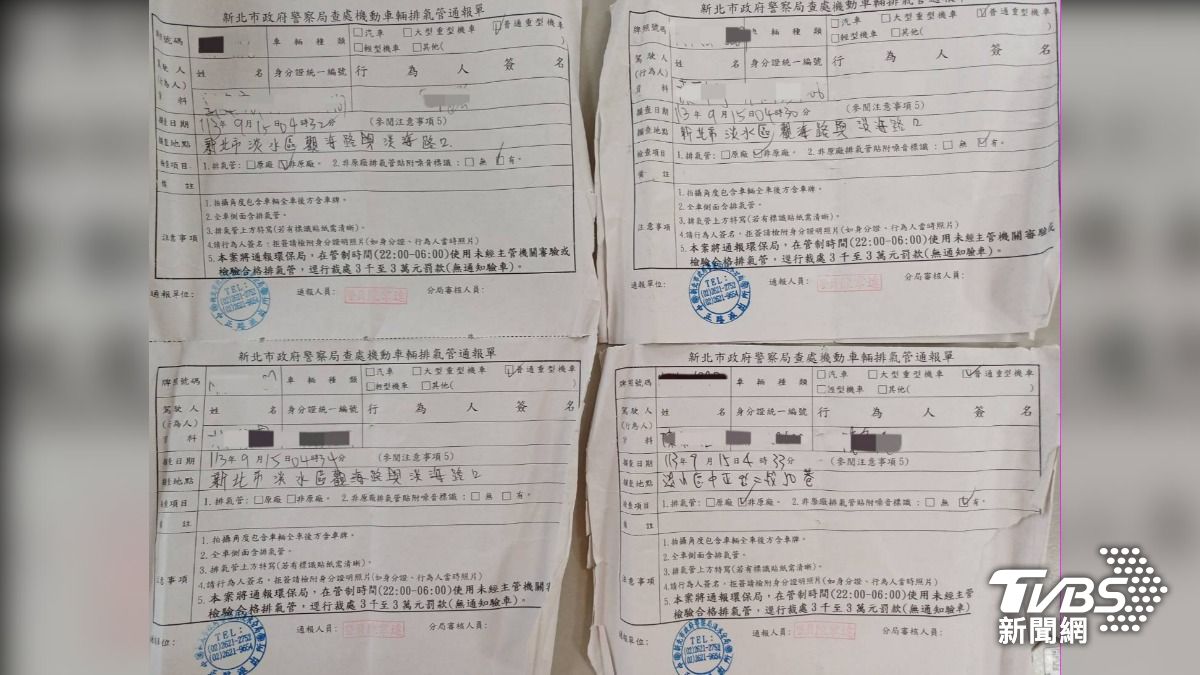 新北市政府警察局查處機動車輛排氣管通報單
牌照號碼 車輛種類 □汽車 □大型重型機車 ☑普通重型機車
□輕型機車 □其他( )
駕駛人 姓名 身分證統一編號 行為人簽名
(行為人)
資料
攔查日期 113年9月15日04時32分 (參閱注意事項5)
攔查地點 新北市淡水區觀海路與淡海路口
檢查項目 1.排氣管:□原廠 ☑非原廠。 2.非原廠排氣管貼附噪音標識:□無 ☑有。
備註
注意事項
1.拍攝角度包含車輛全車後方含車牌。
2.全車側面含排氣管。
3.排氣管上方特寫(若有標識貼紙需清晰)。
4.請行為人簽名,拒簽請檢附身分證明照片(如身分證、行為人當時照片)
5.本案將通報環保局,在管制時間(22:00-06:00)使用未經主管機關審驗或
檢驗合格排氣管,逕行裁處3千至3萬元罰款(無通知驗車)。
通報單位: 通報人員: 分局審核人員:
TEL:
(02)2621-2752
(02)2621-9654
中正路派出所
新北市政府警察局查處機動車輛排氣管通報單
牌照號碼 車輛種類 □汽車 □大型重型機車 ☑普通重型機車
□輕型機車 □其他( )
駕駛人 姓名 身分證統一編號 行為人簽名
(行為人)
資料
攔查日期 113年9月15日04時30分 (參閱注意事項5)
攔查地點 新北市淡水區觀海路與淡海路口
檢查項目 1.排氣管:□原廠 ☑非原廠。 2.非原廠排氣管貼附噪音標識:□無 ☑有。
備註
注意事項
1.拍攝角度包含車輛全車後方含車牌。
2.全車側面含排氣管。
3.排氣管上方特寫(若有標識貼紙需清晰)。
4.請行為人簽名,拒簽請檢附身分證明照片(如身分證、行為人當時照片)
5.本案將通報環保局,在管制時間(22:00-06:00)使用未經主管機關審驗或
檢驗合格排氣管,逕行裁處3千至3萬元罰款(無通知驗車)。
通報單位: 通報人員: 分局審核人員:
TEL:
(02)2621-2752
(02)2621-9654
中正路派出所
新北市政府警察局查處機動車輛排氣管通報單
牌照號碼 車輛種類 □汽車 □大型重型機車 ☑普通重型機車
□輕型機車 □其他( )
駕駛人 姓名 身分證統一編號 行為人簽名
(行為人)
資料
攔查日期 113年9月15日04時34分 (參閱注意事項5)
攔查地點 新北市淡水區觀海路與淡海路口
檢查項目 1.排氣管:□原廠 □非原廠。 2.非原廠排氣管貼附噪音標識:□無 □有。
備註
注意事項
1.拍攝角度包含車輛全車後方含車牌。
2.全車側面含排氣管。
3.排氣管上方特寫(若有標識貼紙需清晰)。
4.請行為人簽名,拒簽請檢附身分證明照片(如身分證、行為人當時照片)
5.本案將通報環保局,在管制時間(22:00-06:00)使用未經主管機關審
檢驗合格排氣管,逕行裁處3千至3萬元罰款(無通知驗車)。
通報單位: 通報人員: 分局審核人員:
TEL:
(02)2621-2752
(02)2621-9654
新北市政府警察局查處機動車輛排氣管通報單
牌照號碼 車輛種類 □汽車 □大型重型機車 ☑普通重型機車
□輕型機車 □其他( )
駕駛人 姓名 身分證統一編號 行為人簽名
(行為人)
資料
攔查日期 113年9月15日4時33分 (參閱注意事項5)
攔查地點 淡水區中正路二段 巷
檢查項目 1.排氣管:□原廠 ☑非原廠。 2.非原廠排氣管貼附噪音標識:□無 ☑有。
備註
注意事項
1.拍攝角度包含車輛全車後方含車牌。
2.全車側面含排氣管。
3.排氣管上方特寫(若有標識貼紙需清晰)。
4.請行為人簽名,拒簽請檢附身分證明照片(如身分證、行為人當時照片)
5.本案將通報環保局,在管制時間(22:00-06:00)使用未經主
檢驗合格排氣管,逕行裁處3千至3萬元罰款(無通知驗車)
通報單位: 通報人員: 分局審核人員:
TEL:
(02)2621-2752
(02)2621-9654
TVBS
新聞網